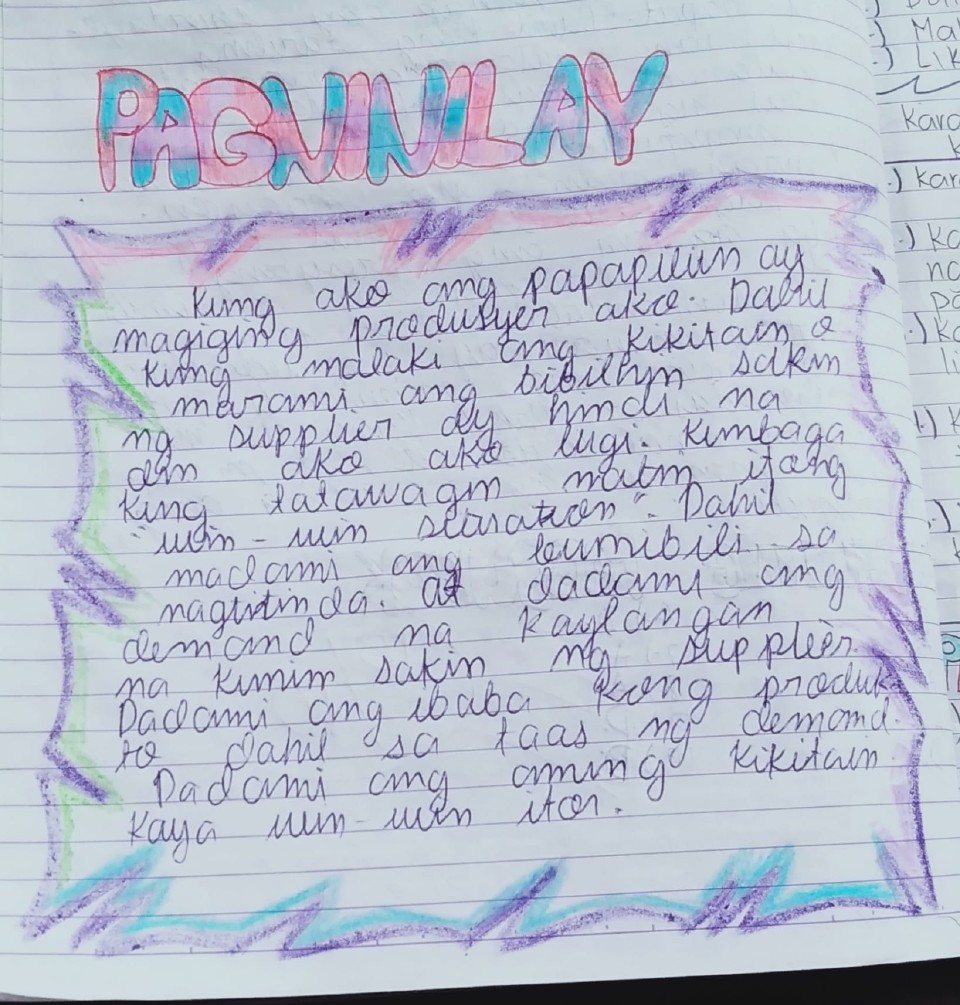 PAGNINILAY
Kung ako ang papapiliin ay
magiging produsyer ako. Dahil
kung malaki ang kikitain o
marami ang bibilhin sakin
ng supplier ay hindi na
din ako ako lugi. Kumbaga
kung tatawagin natin itong
"win-win situation". Dahil
madami ang bumibili sa
nagtitinda. at dadami ang
demand na kaylangan
na kunin sakin ng supplier.
Dadami ang ibaba kong produk
to dahil sa taas ng demand.
Dadami ang aming kikitain
kaya win-win iton.
Kara
.) Kar
.) Ko